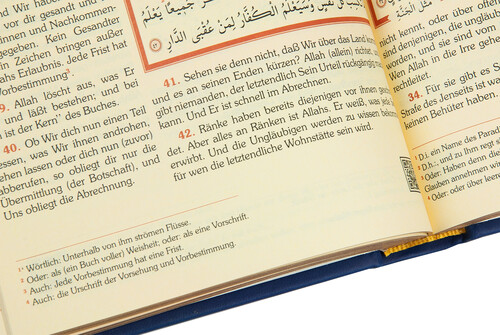 كْرُ جَمِيعًا يَعْلَمُ
نَفْسٍ وَسَيَعْلَمُ الْكُفَّارُ لِمَنْ عُقْبَى الدَّارِ
nd Wir haben
vor dir gesandt und
und Nachkommen-
gegeben. Kein Gesandter
in Zeichen bringen außer
ahs Erlaubnis. Jede Frist hat
Vorbestimmung³.
9. Allah löscht aus, was Er
und läßt bestehen; und bei
n ist der Kern⁴ des Buches.
40. Ob Wir dich nun einen Teil
dessen, was Wir ihnen androhen,
ehen lassen oder dich nun (zuvor)
abberufen, so obliegt dir nur die
Übermittlung (der Botschaft), und
Uns obliegt die Abrechnung.
41. Sehen sie denn nicht, daß Wir über das Land
und es an seinen Enden kürzen? Allah (allein) richtet,
gibt niemanden, der letztendlich Sein Urteil rückgängig
kann. Und Er ist schnell im Abrechnen.
42. Ränke haben bereits diejenigen vor ihnen
det. Aber alles an Ränken ist Allahs. Er weiß, was jede
erwirbt. Und die Ungläubigen werden zu wissen bekommen,
für wen die letztendliche Wohnstätte sein wird.
1* Wörtlich: Unterhalb von ihm strömen Flüsse.
2 Oder: als (ein Buch voller) Weisheit; oder: als eine Vorschrift.
3 Auch: Jede Vorbestimmung hat eine Frist.
4 Auch: die Urschrift der Vorsehung und Vorbestimmung.
nicht
nennt, oder über offen
den Ungläubigen
worden; und sie sind vom
Wen Allah in die Irre gehen
rechtleitet.
34. Für sie gibt es S
Strafe des Jenseits ist
keinen Behüter haben.
1 D.i. ein Name des Parad
2 D.h.: und zu Ihm regt s
3 Oder: Haben denn die
Glauben annehmen wir
4 Oder: oder über leere